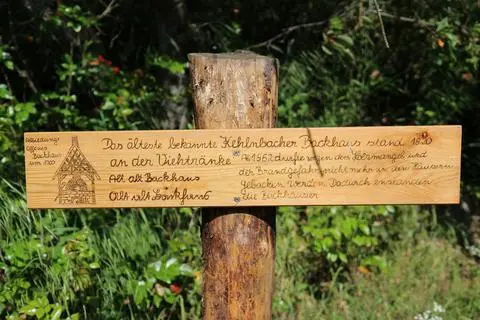 Offenes
Backhaus
um 1500
Das älteste bekannte Kehlnbacher Backhaus stand
an der Viehtränke
Alt alt Backhaus
Alt alt
Ab 1562 durfte wegen dem Holzmangel und
der Brandgefahr nicht mehr in den Häusern
gebacken werden. Dadurch enstanden
die Backhäuser